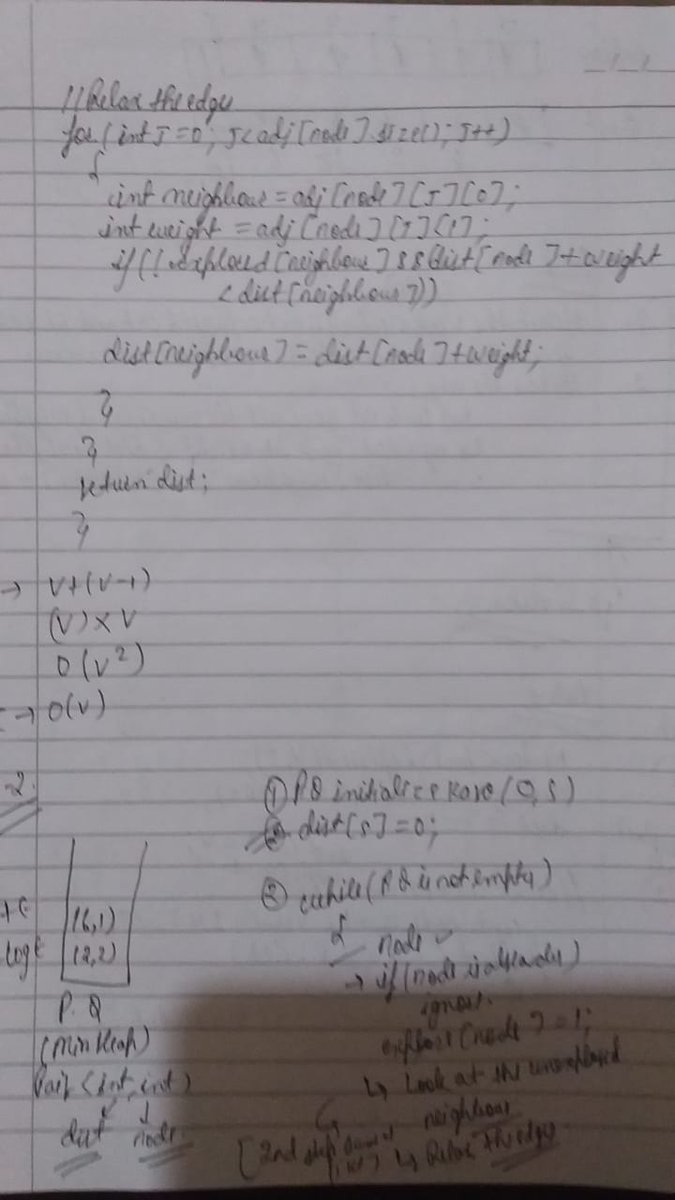 //Relax the edge
for(int J=0; J<adj[node].size(); J++)
{
int neighbour=adj[node][J][0];
int weight =adj[node][J][1];
if(!explored[neighbour]&&dist[node]+weight
<dist[neighbour])
dist[neighbour]=dist[node]+weight;
}
}
return dist;
}
→ V+(V-1)
(V)×V
O(V²)
→ O(V)
-2.
① PQ initialize karo (0,s)
dist[s]=0;
② while(PQ is not empty)
{ node
→ if(node is already)
ignore.
explore[node]=1;
↳ Look at the unexplored
neighbour
[2nd step
↳ Relax the edge
(6,1)
log
(2,2)
P.Q
(min Heap)
Pair<int,int>
dist node